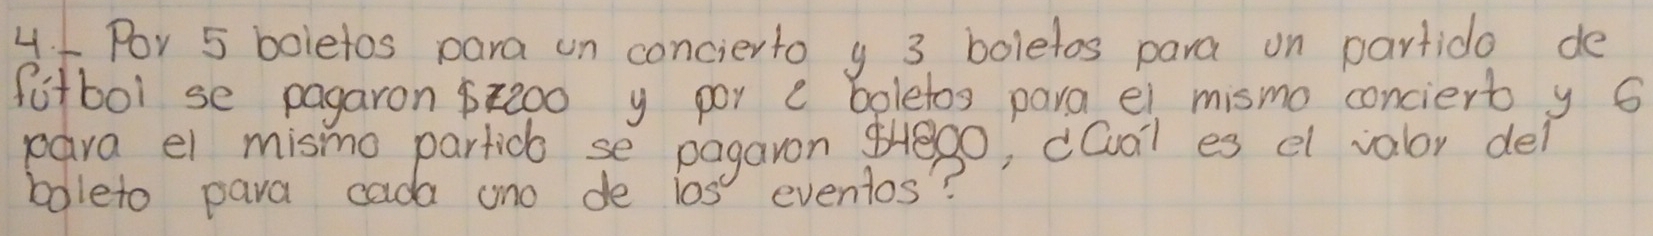 4.- Por 5 boletos para un concierto y 3 boletos para un partido de
fútbol se pagaron $7200 y por 2 boletos para el mismo concierto y 6
para el mismo partido se pagaron $4800, ¿Cuál es el valor del
boleto para cada uno de los eventos?